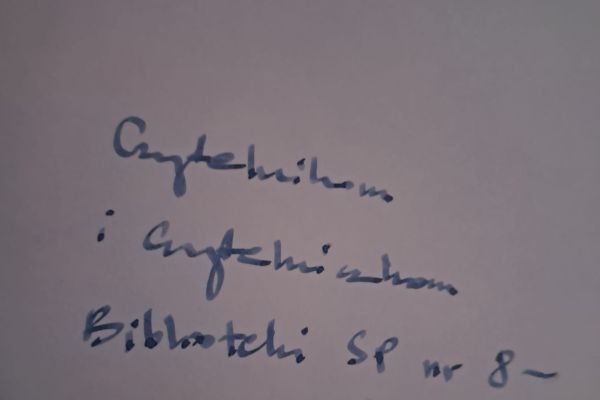 Czytelnikom
i Czytelniczkom
Biblioteki SP nr 8 ~